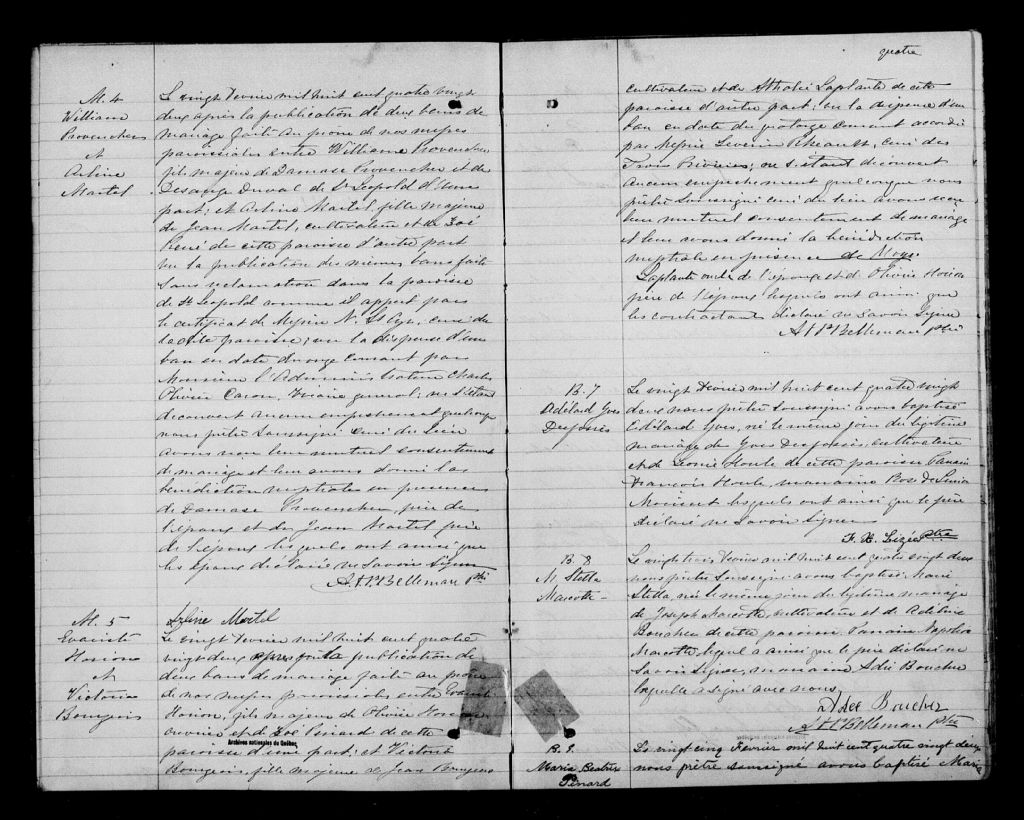 M. 4
William
Provencher
et
Arline
Martel
Le vingt Fevrier mil huit cent quatre vingt
deux après la publication de deux bans de
mariage faite au prône de nos messes
paroissiales entre William Provencher
fils majeur de Damase Provencher et de
Desange Duval de St Leopold d'une
part; et Arline Martel fille majeure
de Jean Martel, cultivateur et de Zoé
de cette paroisse d'autre part
vu la publication des mêmes bans faite
sans reclamation dans la paroisse
de St Leopold comme il appert par
le certificat de Messire N. St Cyr, curé de
la dite paroisse; vu la dispense d'un
ban en date du onze courant par
Monsieur l'Administrateur Charles
Olivier Caron, Vicaire general; ne s'étant
découvert aucun empêchement quelconque
nous prêtre soussigné curé du lieu
avons reçu leur mutuel consentement
de mariage et leur avons donné la
benediction nuptiale en presence
de Damase Provencher, père de
l'époux et de Jean Martel père
de l'épouse lesquels ont ainsi que
les époux déclaré ne savoir signer
A. H. Bellemare Ptre
M. 5
Evariste
Horion
et
Victoria
Bourgeois
Arline Martel
Le vingt Fevrier mil huit cent quatre
vingt deux après la publication de
deux bans de mariage faite au prône
de nos messes paroissiales entre Evariste
Horion, fils majeur de Olivier Horion
ouvrier et de Zoé Pinard de cette
Archives nationales du Québec
paroisse d'une part: et Victoria
Bourgeois, fille majeure de Jean Bourgeois
quatre
cultivateur et de Athalie Laplante de cette
paroisse d'autre part: vu la dispense d'un
ban en date du quatorze courant accordé
par Messire Severin Rheault, curé des
Trois Rivières; ne s'étant découvert
aucun empêchement quelconque nous
prêtre soussigné curé du lieu avons reçu
leur mutuel consentement de mariage
et leur avons donné la bénédiction
nuptiale en presence de Moyse
Laplante oncle de l'épouse et de Olivier Horion
père de l'époux lesquels ont ainsi que
les contractants déclaré ne savoir signer
A. H. Bellemare Ptre
B. 7
Adélard Yves
Desfossés
Le vingt Fevrier mil huit cent quatre vingt
deux nous prêtre soussigné avons baptisé
Adélard Yves, né le même jour du légitime
mariage de Yves Desfossés, cultivateur
et de Leonie Houle de cette paroisse Parrain
François Houle, marraine Rose de Lima
lesquels ont ainsi que le père
déclaré ne savoir signer
Ptre
B. 8
M. Stella
Marcotte
Le vingt trois Fevrier mil huit cent quatre vingt deux
nous prêtre soussigné avons baptisé Marie
Stella, née le même jour du légitime mariage
de Joseph Marcotte cultivateur et de Adeline
Boucher de cette paroisse. Parrain Napoléon
Marcotte lequel a ainsi que le père déclaré ne
savoir signer, marraine Adée Boucher
laquelle a signé avec nous.
Adée Boucher
A. H. Bellemare Ptre
B. 9.
Maria Beatrix
Pinard
Le vingt cinq Fevrier mil huit cent quatre vingt deux
nous prêtre soussigné avons baptisé Maria